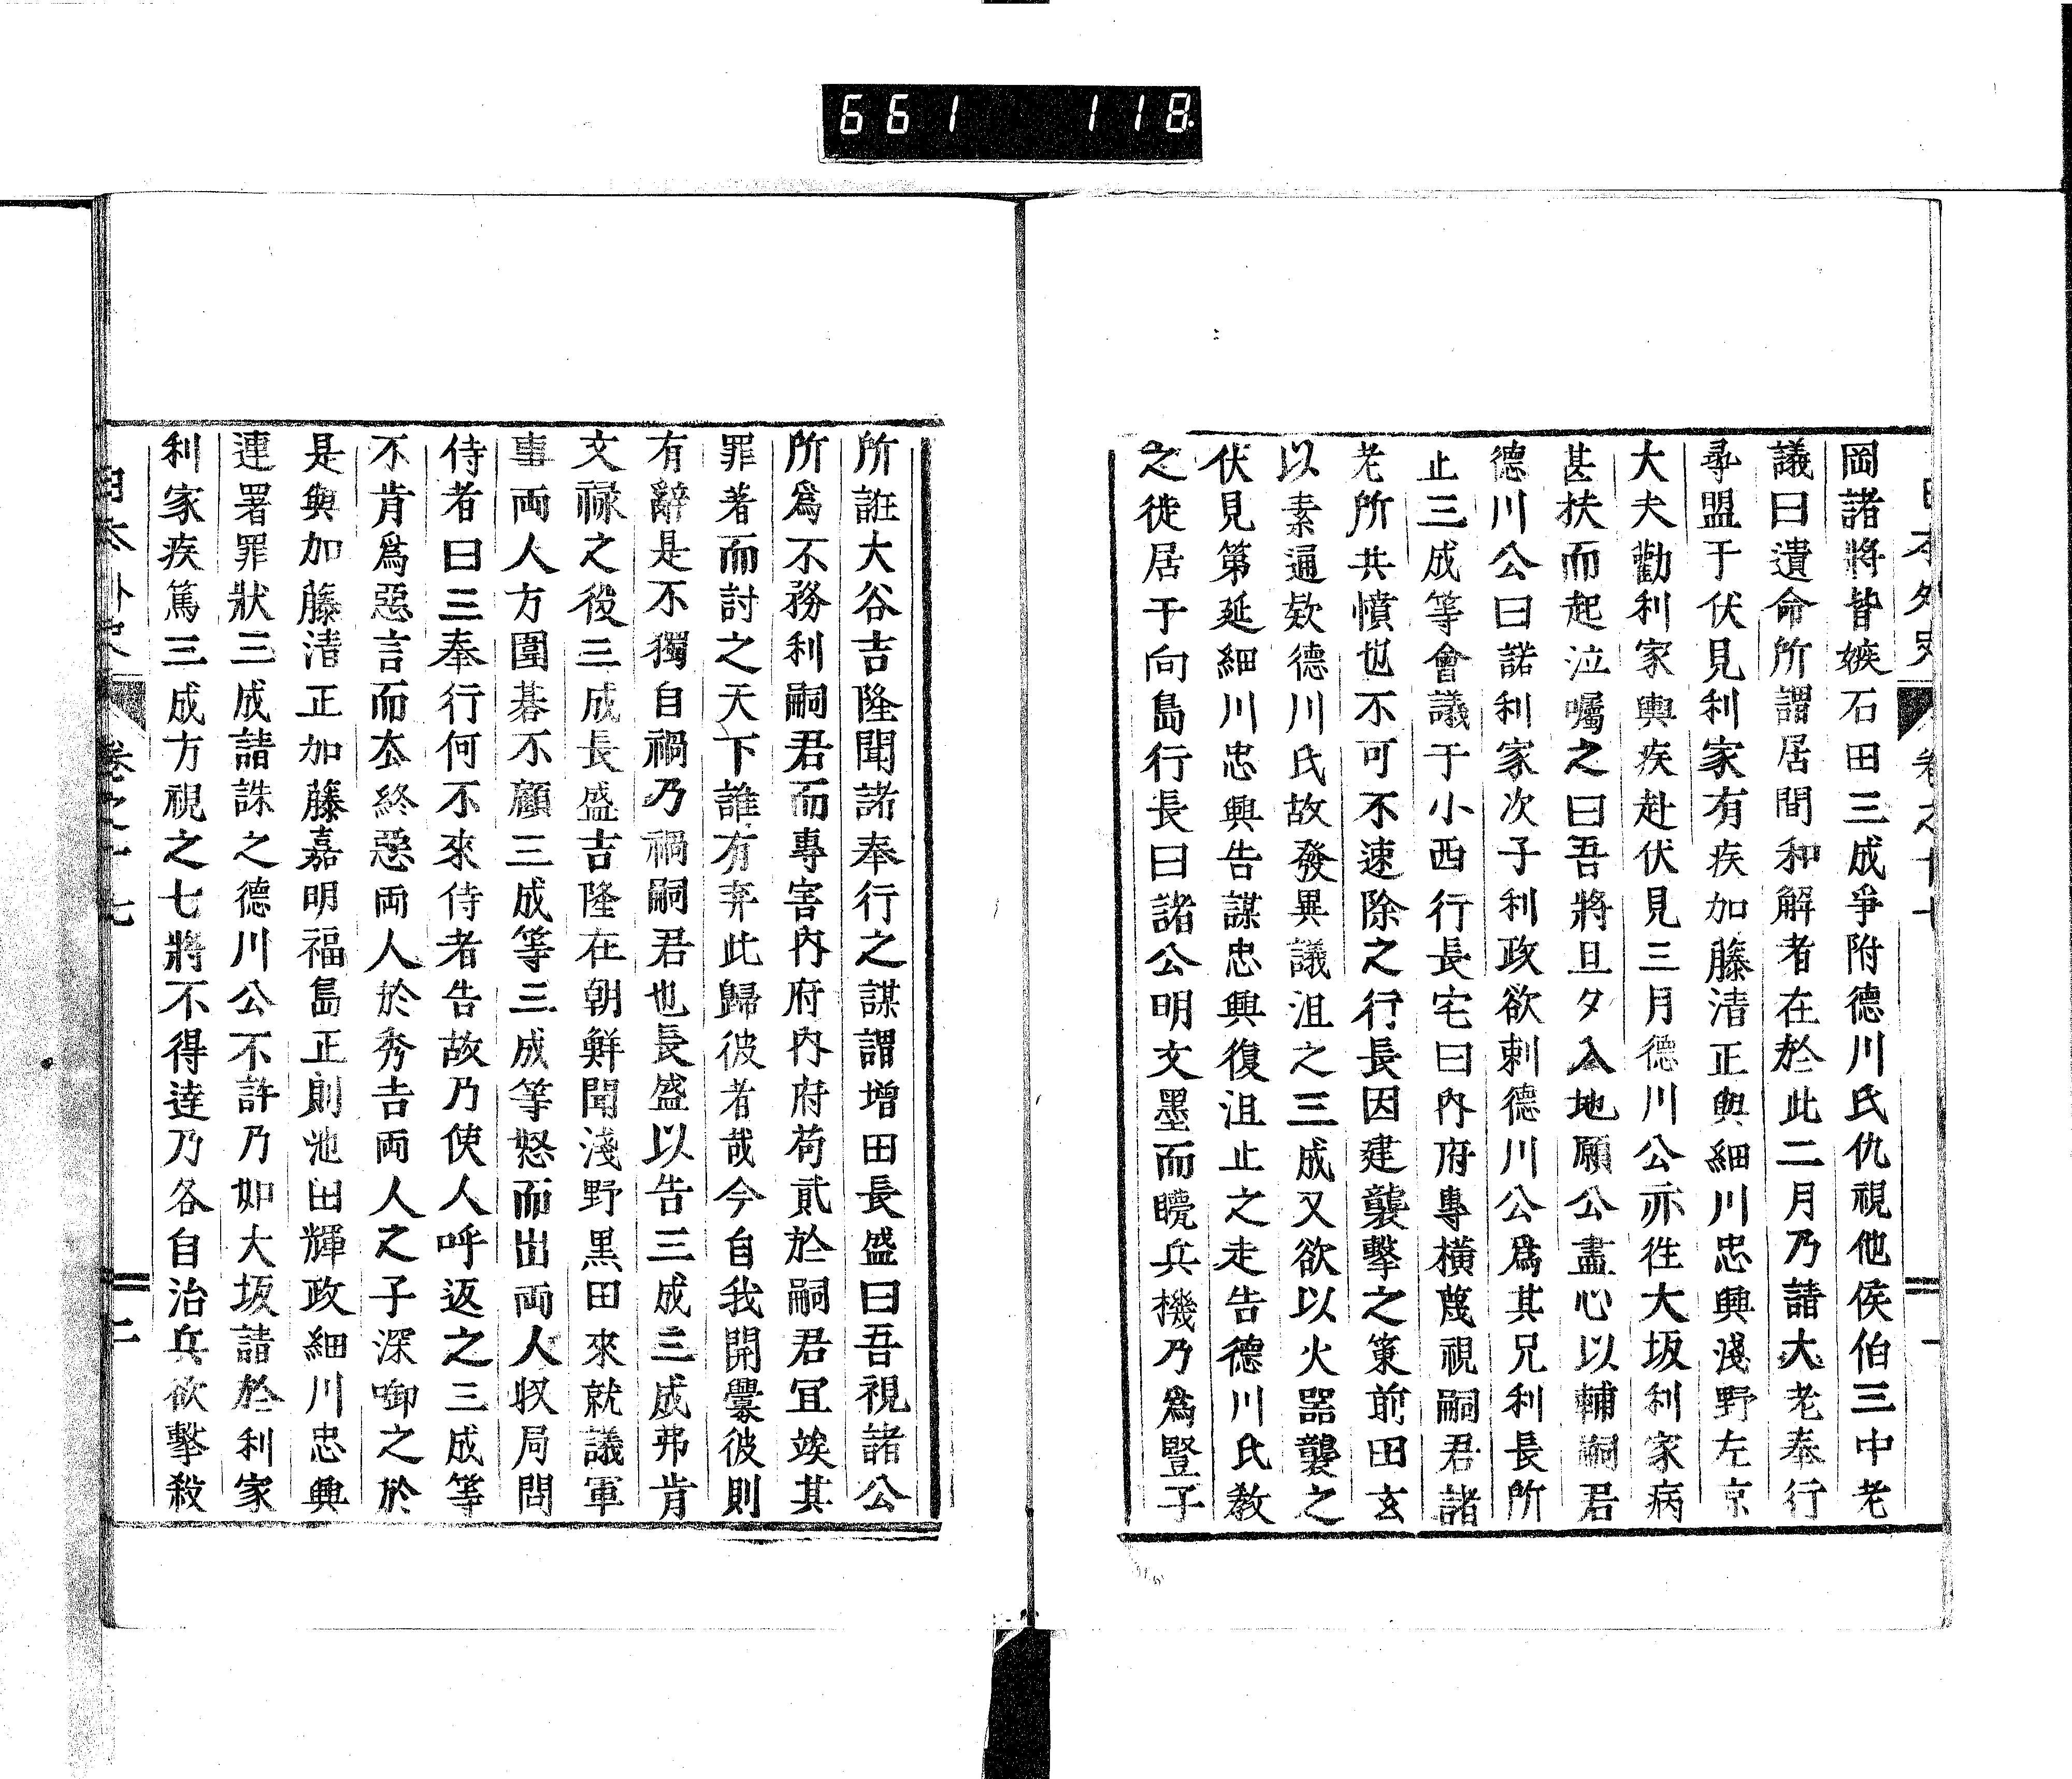 661 118
日本外史 卷之十七 一
岡諸將皆嫉石田三成爭附德川氏仇視他侯伯三中老
議曰遺命所謂居間和解者在於此二月乃諸大老奉行
尋盟于伏見利家有疾加藤清正與細川忠興淺野左京
大夫勸利家輿疾赴伏見三月德川公亦徃大坂利家病
甚扶而起泣囑之曰吾將旦夕入地願公盡心以輔嗣君
德川公曰諾利家次子利政欲刺德川公爲其兄利長所
止三成等會議于小西行長宅曰內府專橫蔑視嗣君諸
老所共憤也不可不速除之行長因建襲擊之策前田玄
以素通欵德川氏故發異議沮之三成又欲以火器襲之
伏見第延細川忠興告謀忠興復沮止之走告德川氏敎
之徙居于向島行長曰諸公明文墨而矇兵機乃爲豎子
所誑大谷吉隆聞諸奉行之謀謂增田長盛曰吾視諸公
所爲不務利嗣君而專害內府內府苟貳於嗣君宜竢其
罪著而討之天下誰有弃此歸彼者哉今自我開釁彼則
有辭是不獨自禍乃禍嗣君也長盛以告三成三成弗肯
文祿之役三成長盛吉隆在朝鮮聞淺野黑田來就議軍
事両人方圍碁不顧三成等三成等怒而出両人収局問
侍者曰三奉行何不來侍者告故乃使人呼返之三成等
不肯爲惡言而厺終惡両人於秀吉両人之子深啣之於
是與加藤清正加藤嘉明福島正則池田輝政細川忠興
連署罪狀三成請誅之德川公不許乃如大坂請於利家
利家疾篤三成方視之七將不得達乃各自治兵欲擊殺
日本外史 卷之十七 二